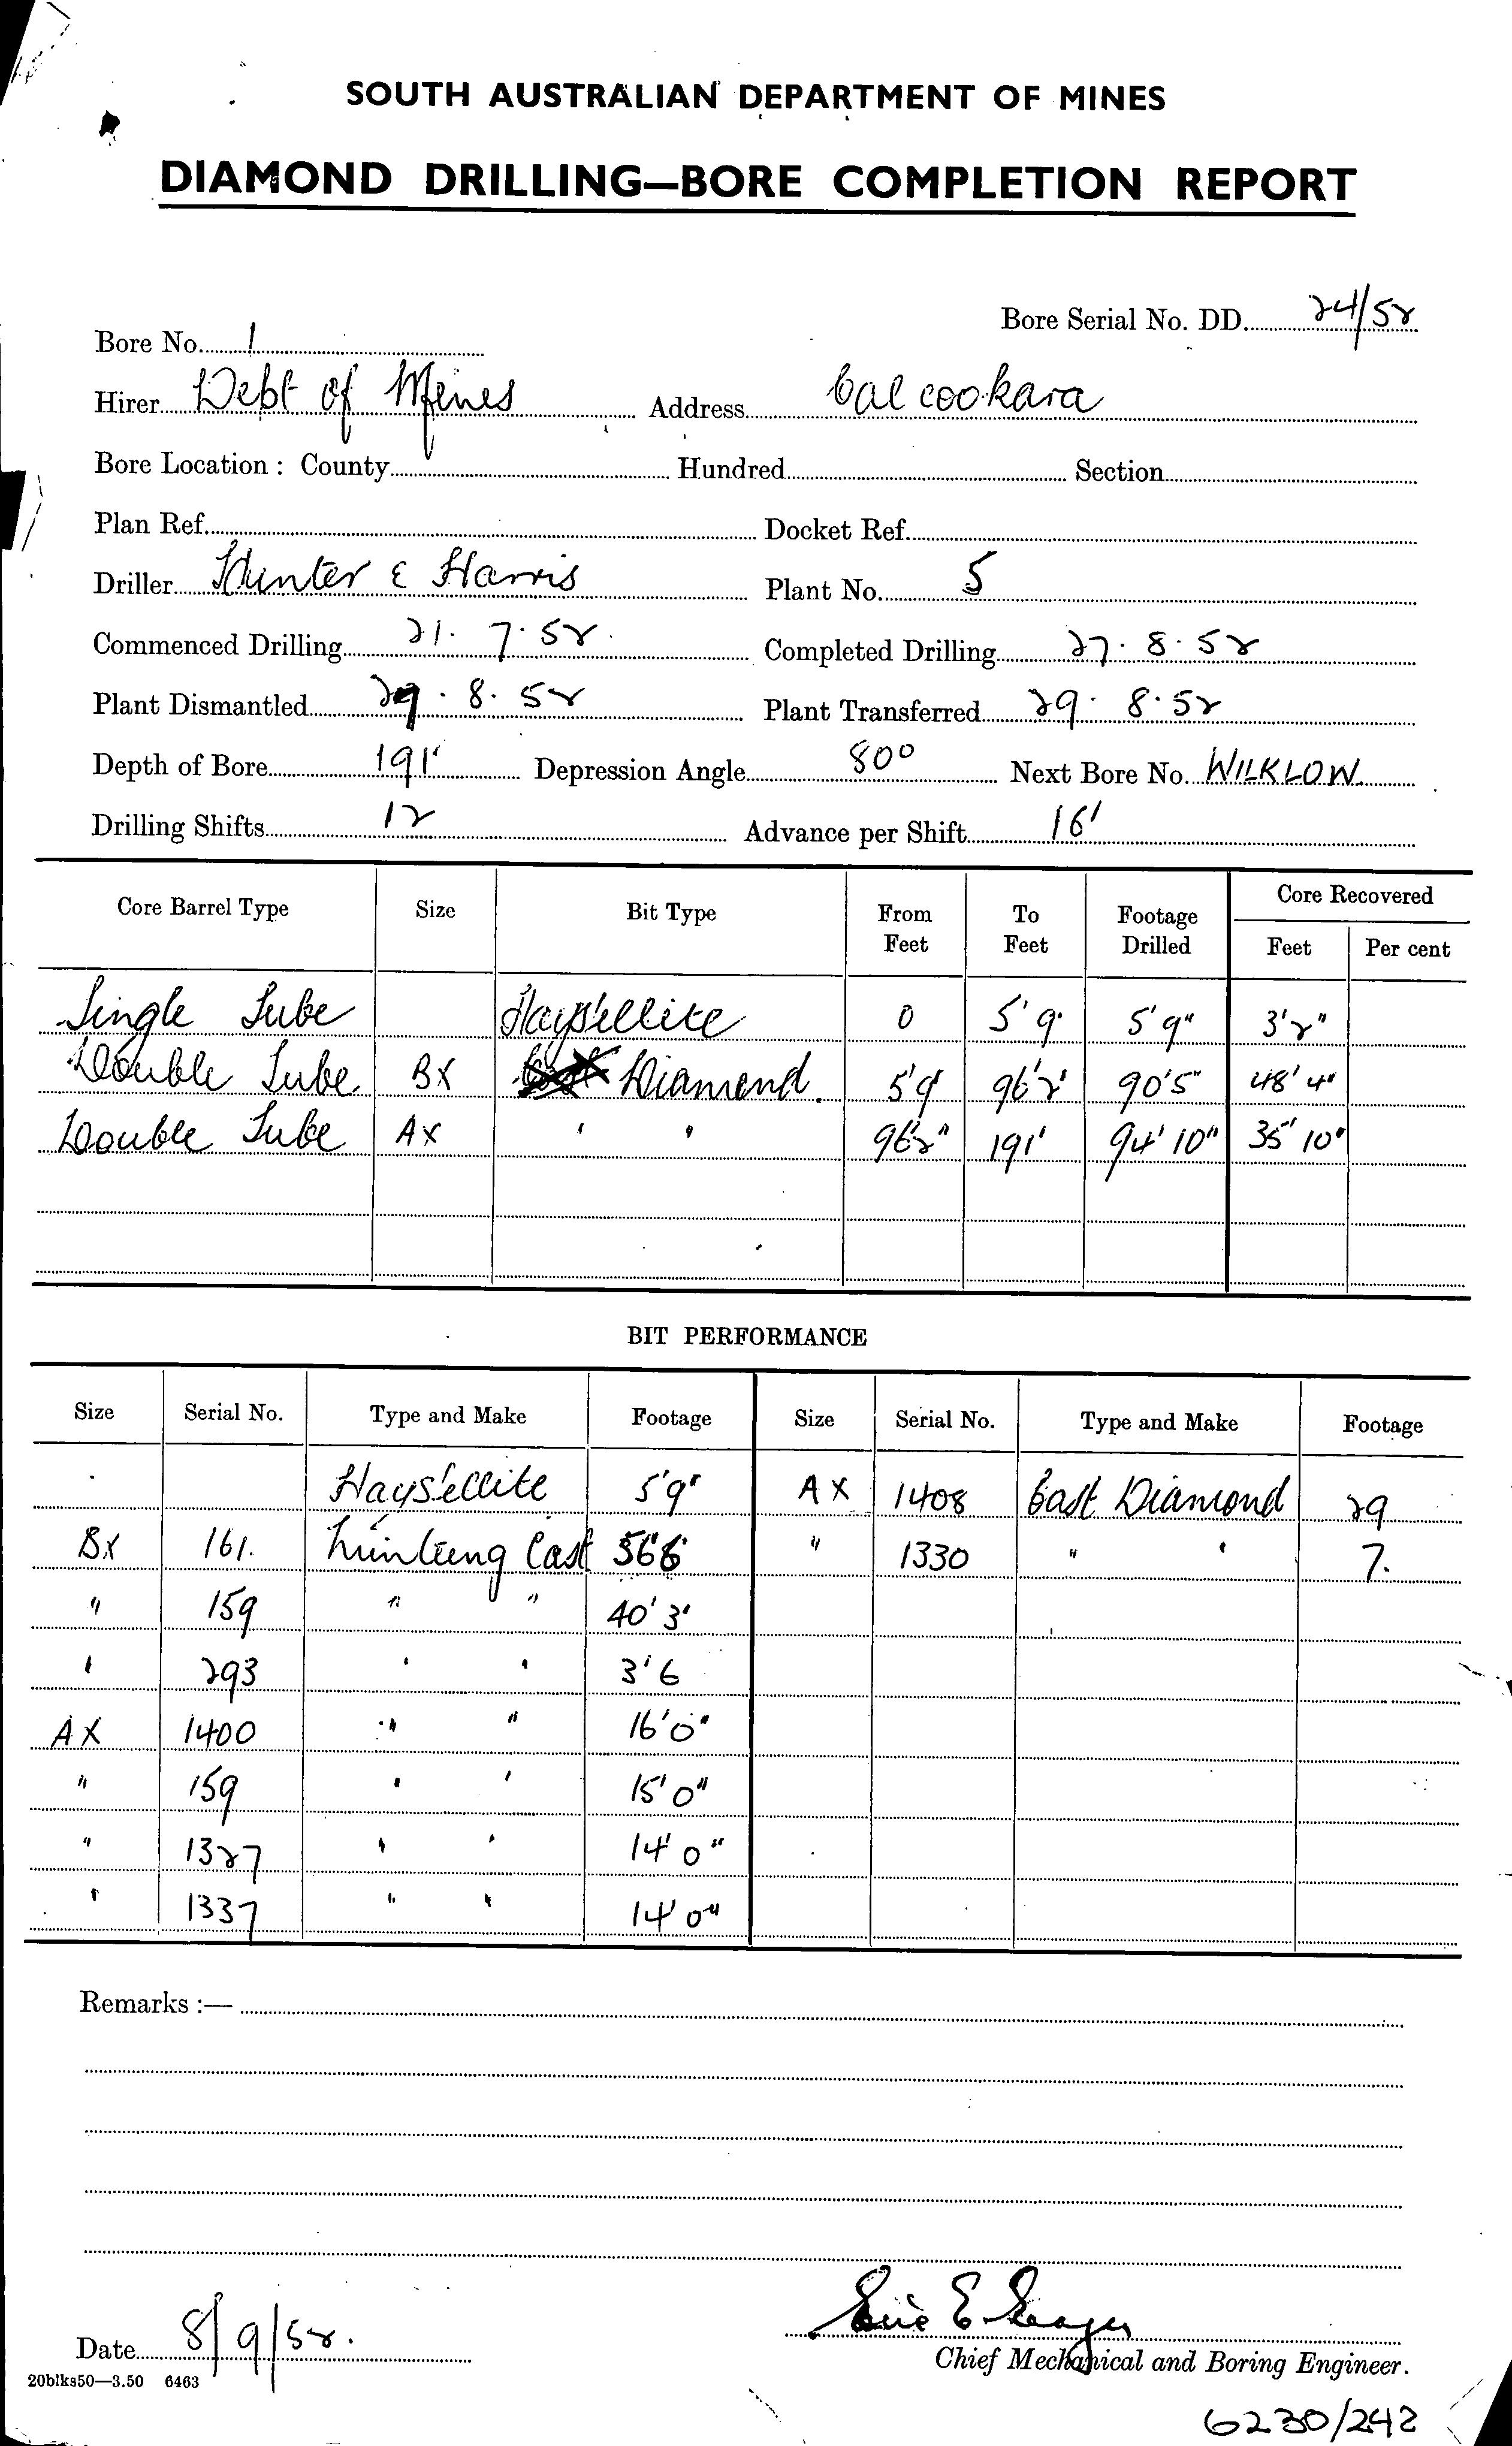 SOUTH AUSTRALIAN DEPARTMENT OF MINES
DIAMOND DRILLING—BORE COMPLETION REPORT
Bore Serial No. DD. 24/52
Bore No. 1
Hirer Dept of Mines Address Calcookara
Bore Location : County Hundred Section
Plan Ref. Docket Ref.
Driller Hunter & Harris Plant No. 5
Commenced Drilling 21. 7. 52. Completed Drilling 27. 8. 52
Plant Dismantled 29. 8. 52 Plant Transferred 29. 8. 52
Depth of Bore 191' Depression Angle 80° Next Bore No. WILKLOW.
Drilling Shifts 12 Advance per Shift 16'
Core Barrel Type Size Bit Type From Feet To Feet Footage Drilled Core Recovered Feet Per cent
Single Tube Haystellite 0 5'9" 5'9" 3'2"
Double Tube BX Diamond. 5'9 96'2" 90'5" 48'4"
Double Tube AX " " 96'2" 191' 94'10" 35'10"
BIT PERFORMANCE
Size Serial No. Type and Make Footage Size Serial No. Type and Make Footage
Haystellite 5'9" AX 1408 Cast Diamond 29
BX 161. Cast 56'6 " 1330 " " 7.
" 159 " " 40'3"
" 293 " " 3'6
AX 1400 " " 16'0"
" 159 " " 15'0"
" 1327 " " 14'0"
" 1337 " " 14'0"
Remarks :—
Date 8/9/52.
Chief Mechanical and Boring Engineer.
20blks50—3.50 6463
6230/242